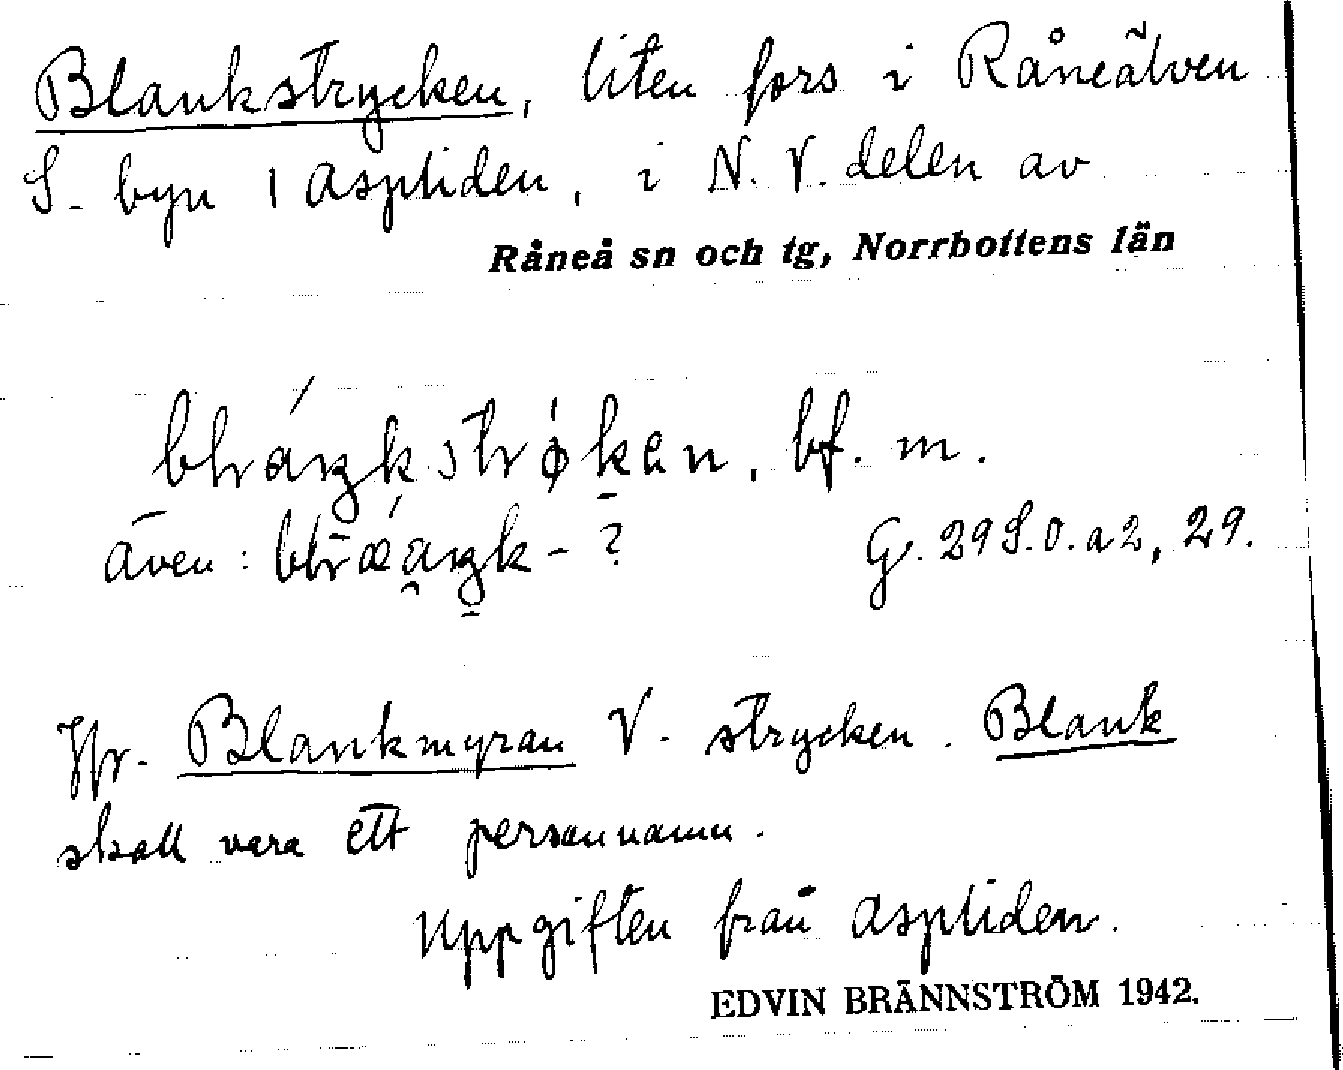 Blankstrycken, liten fors i Råneälven
S. byn 1 Asptiden, i N.V. delen av
Råneå sn och tg, Norrbottens län
bf. m.
även: ?
G. 29 S.O. a 2, 29.
Jfr. Blankmyran V. strycken. Blank
skall vara ett personnamn.
Uppgiften från Asptiden.
EDVIN BRÄNNSTRÖM 1942.